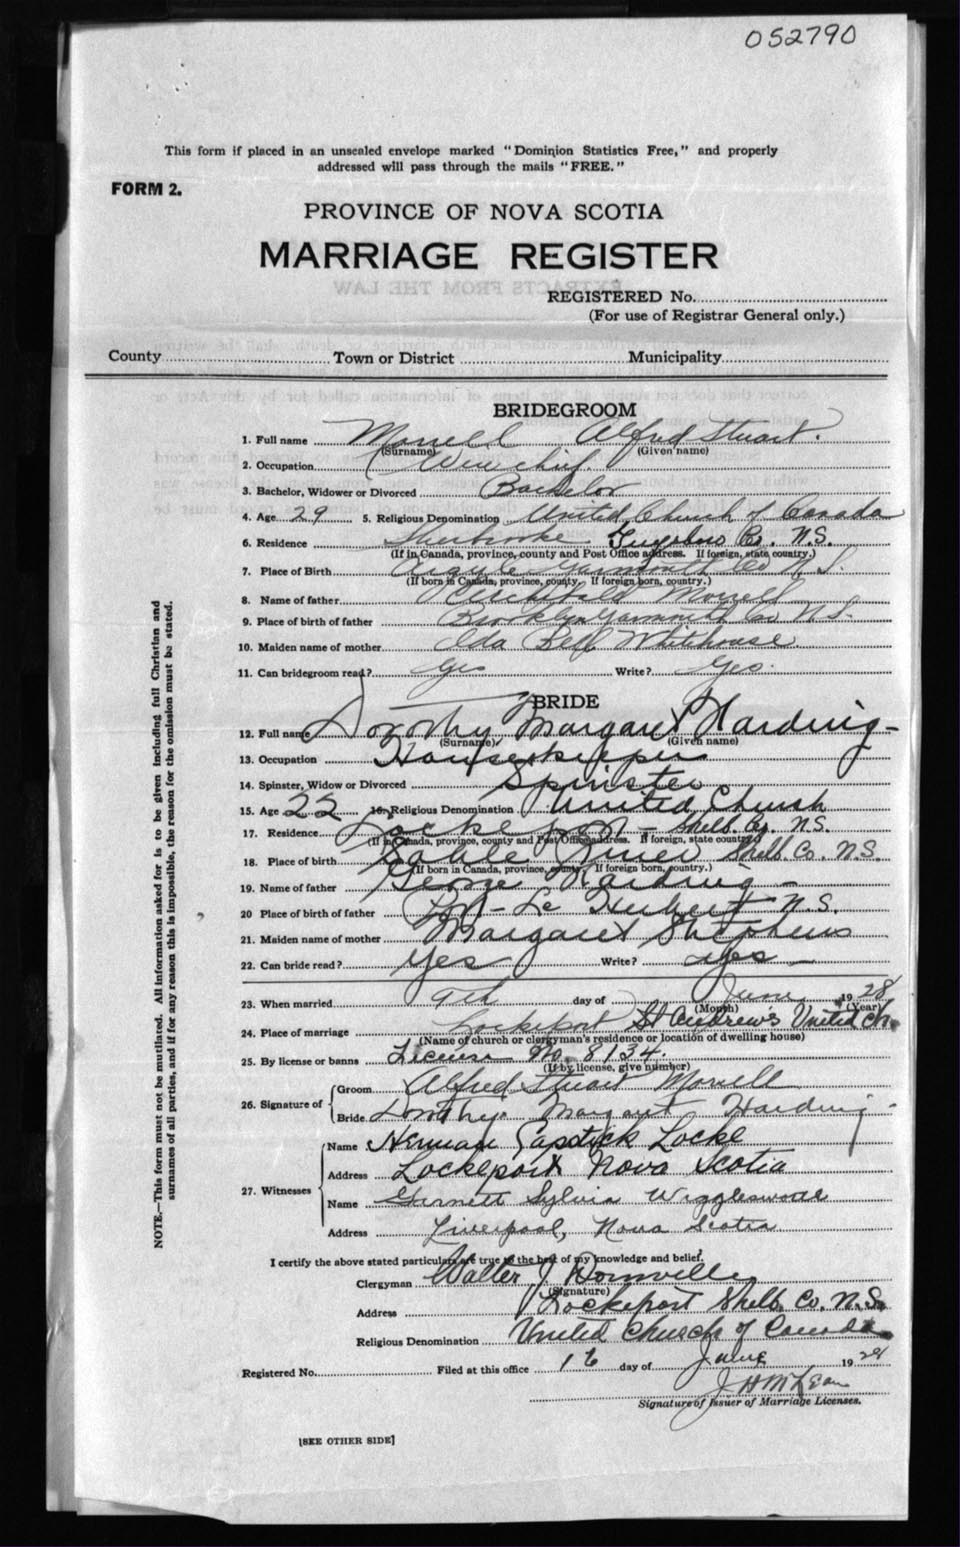 052790
This form if placed in an unsealed envelope marked "Dominion Statistics Free," and properly
addressed will pass through the mails "FREE."
FORM 2.
PROVINCE OF NOVA SCOTIA
MARRIAGE REGISTER
EXTRACTS FROM THE LAW
REGISTERED No.
(For use of Registrar General only.)
County Town or District Municipality
BRIDEGROOM
1. Full name Morrell Alfred Stuart.
(Surname) (Given name)
2. Occupation chief.
3. Bachelor, Widower or Divorced Bachelor
4. Age 29 5. Religious Denomination United Church of Canada
6. Residence Sherbrooke Guysboro Co. N.S.
(If in Canada, province, county and Post Office address. If foreign, state country.)
7. Place of Birth Argyle Yarmouth Co N.S.
(If born in Canada, province, county. If foreign born, country.)
8. Name of father Archibald Morrell
9. Place of birth of father Brooklyn Yarmouth Co N.S.
10. Maiden name of mother Ida Bell Whitehouse
11. Can bridegroom read? Yes Write? Yes.
BRIDE
12. Full name Dorothy Margaret Harding
(Surname) (Given name)
13. Occupation Housekeeper
14. Spinster, Widow or Divorced Spinster
15. Age 22 16. Religious Denomination United Church
17. Residence Lockeport Shelb. Co. N.S.
(If in Canada, province, county and Post Office address. If foreign, state country.)
18. Place of birth Sable River Shelb. Co. N.S.
(If born in Canada, province, county. If foreign born, country.)
19. Name of father George Harding
20 Place of birth of father Herbert N.S.
21. Maiden name of mother Margaret Stephens
22. Can bride read? Yes Write? yes
23. When married 9th day of June 1928
(Month) (Year)
24. Place of marriage Lockeport St Andrew's United Ch.
(Name of church or clergyman's residence or location of dwelling house)
25. By license or banns License No. 8134.
(If by license, give number)
26. Signature of Groom Alfred Stuart Morrell
Bride Dorothy Margaret Harding
27. Witnesses Name Herman Capstick Locke
Address Lockeport Nova Scotia
Name Garnett Sylvia Wigglesworth
Address Liverpool, Nova Scotia
I certify the above stated particulars are true to the best of my knowledge and belief.
Clergyman Walter J. Domville
(Signature)
Address Lockeport Shelb. Co. N.S.
Religious Denomination United Church of Canada
Registered No. Filed at this office 16 day of June 1928
J H McLean
Signature of Issuer of Marriage Licenses.
[SEE OTHER SIDE]
NOTE.—This form must not be mutilated. All information asked for is to be given including full Christian and
surnames of all parties, and if for any reason this is impossible, the reason for the omission must be stated.